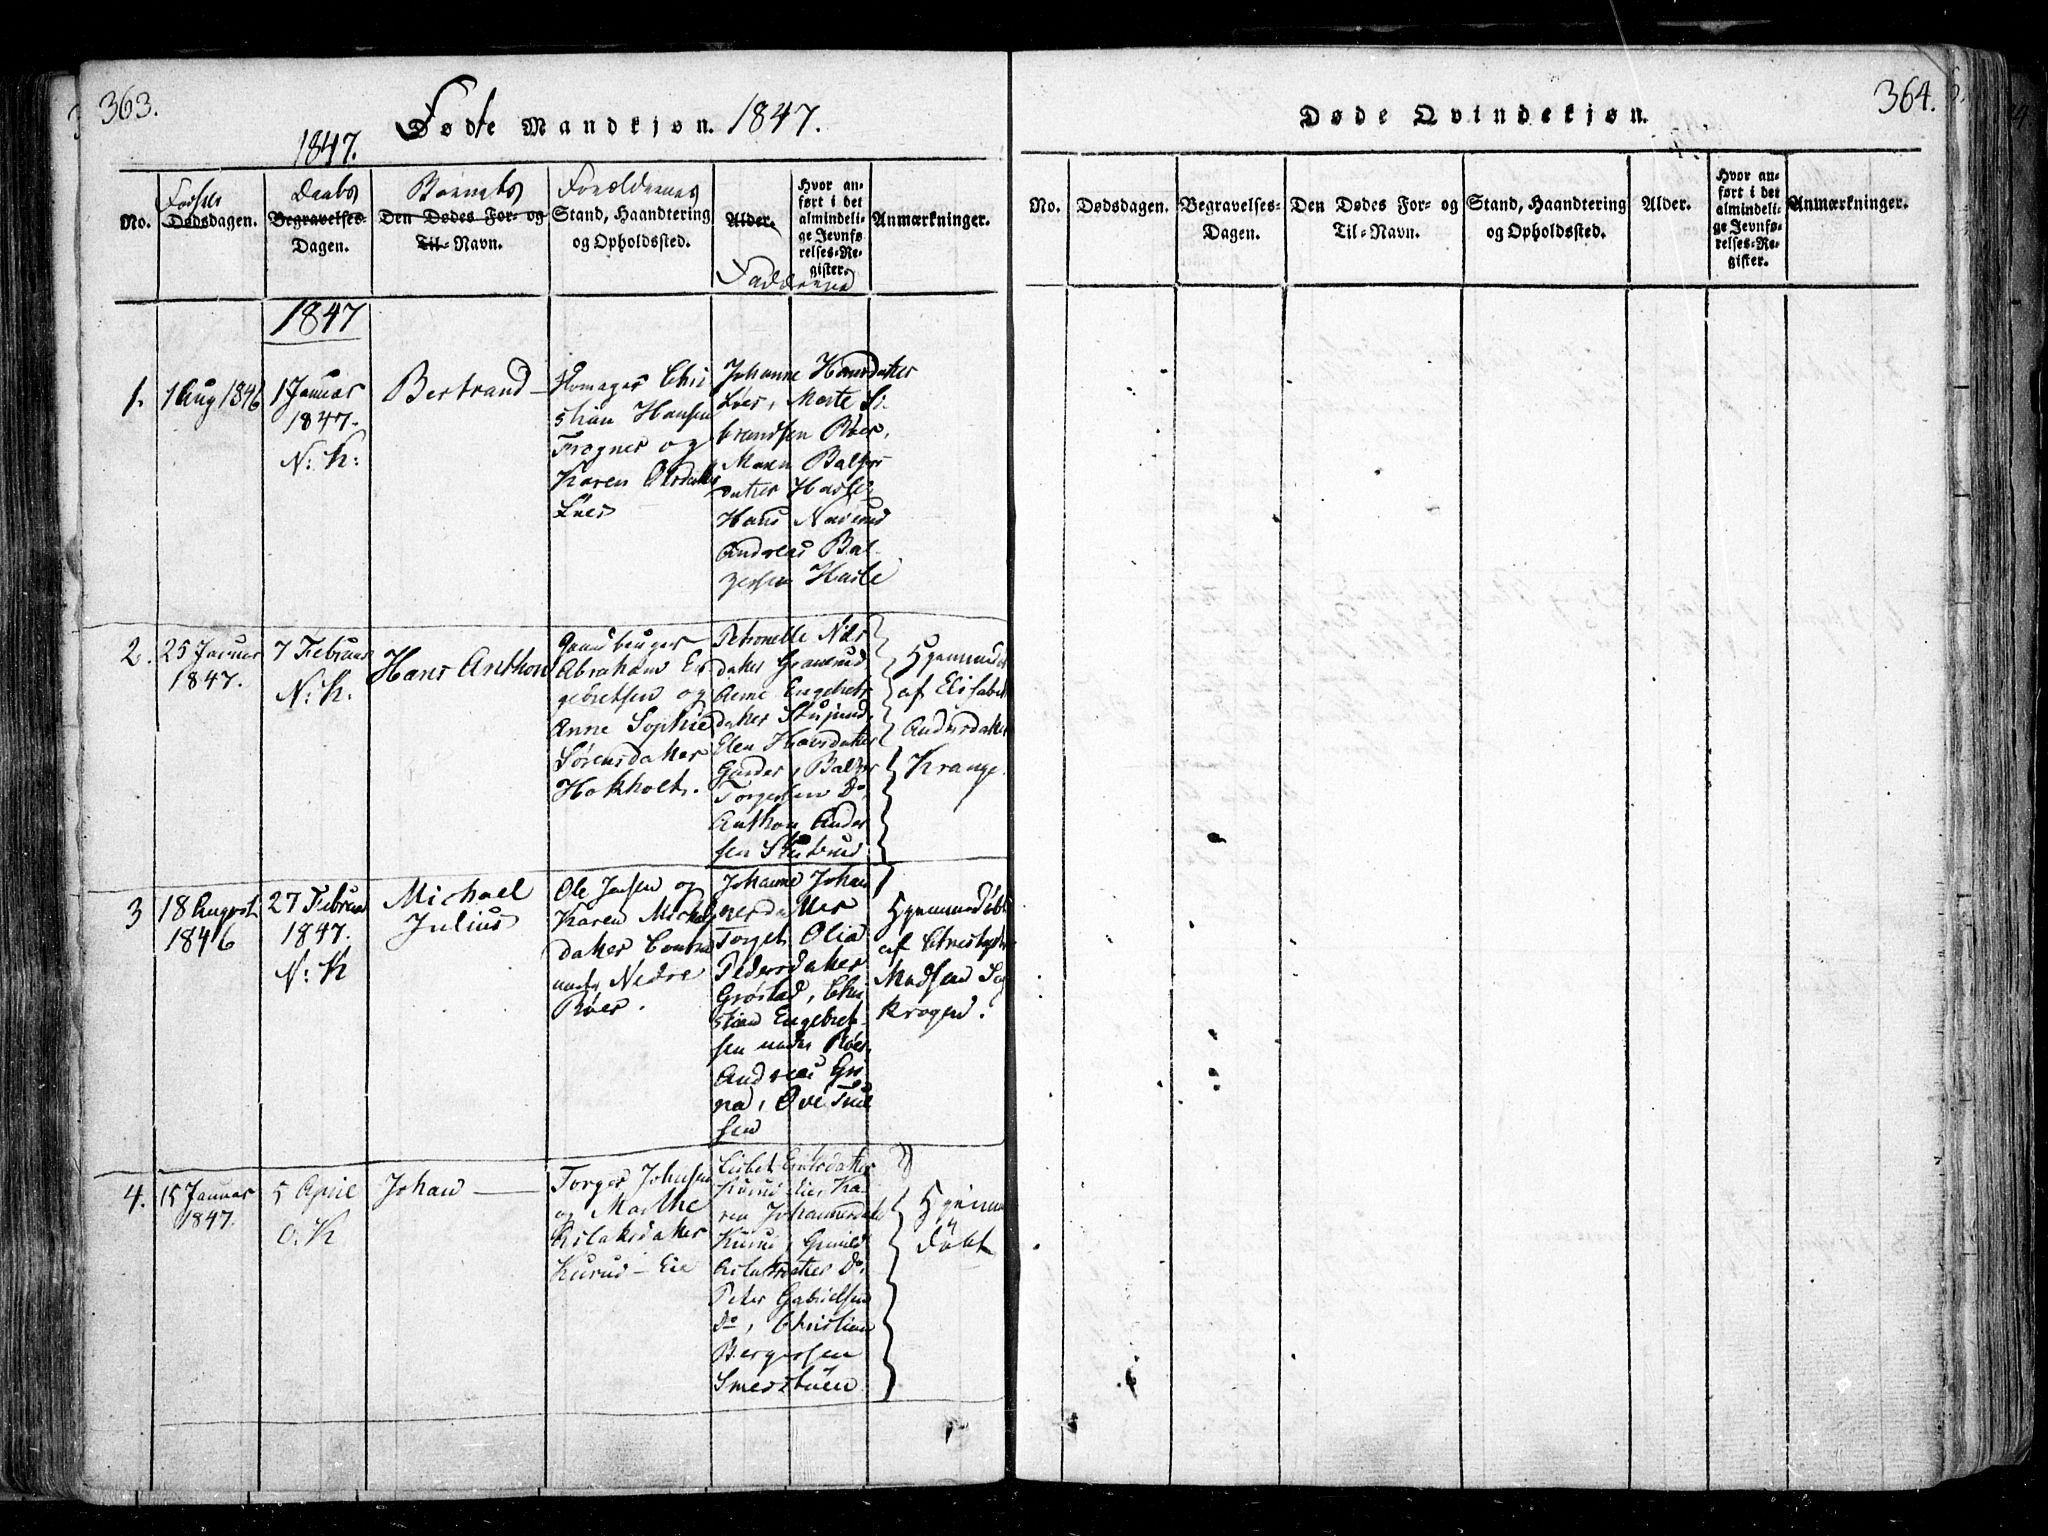 363.
Fødte Mandkjøn. 1847.
1847.
No.
Fødsels
Dødsdagen.
Daabs
Begravelses-
Dagen.
Barnets
Den Dødes For- og
Til-Navn.
Forældrenes
Stand, Haandtering
og Opholdssted.
Alder.
Hvor an-
ført i det
almindeli-
ge Jevnfø-
relses-Re-
gister.
Faddere
Anmærkninger.
1847
1.
1 Aug 1846
1 Januar
1847.
N: K:
Bertrand
Chri
stian Hansen
Frogner og
Karen Olsdatter
Lier
Johanne Hansdatter
Lier, Marte
brandsen Røer,
Maren Balzer
datter Hasle
Hans
Andreas Bal
zersen Hasle
2.
25 Januar
1847.
7 Februar
N: K.
Hans Anthon
Gaardbruger
Abraham En
gebretsen og
Anne Sophie
Sørensdatter
Hokholt.
Petronelle Niels
datter Granerud
Anne Engebrets
datter
Elen Hansdatter
Garder, Balzer
Torgersen do,
Anthon Ander
sen Stubrud
Hjemmedøbt
af Elisabeth
Andersdatter
Krange.
3
18 August
1846
27 Februar
1847.
N: K
Michael
Julius
Ole Jensen og
Karen Michels
datter
Nedre
Røer.
Johanne Johan
nesdatter
Torget, Olia
Pedersdatter
Grøstad, Chri
stian Engebret-
sen nedre Røer,
Andreas
Ove
sen
Hjemmedøbt
af Christopher
Madsen
krogen.
4.
15 Januar
1847.
5 April
O. K
Johan
Torger Johnsen
og Marthe
Aslaksdatter
Kurud-Eie
Lisbet
Kurud Eie, Ka
ren Johannesdat
Kurud, Gunild
Aslaksdatter do,
Peter Gabrielsen
do, Christian
Bergersen
Smerstuen
Hjemme
døbt
364.
Døde Qvindekjøn.
No.
Dødsdagen.
Begravelses-
Dagen.
Den Dødes For- og
Til-Navn.
Stand, Haandtering
og Opholdssted.
Alder.
Hvor an-
ført i det
almindeli-
ge Jevnfø-
relses-Re-
gister.
Anmærkninger.